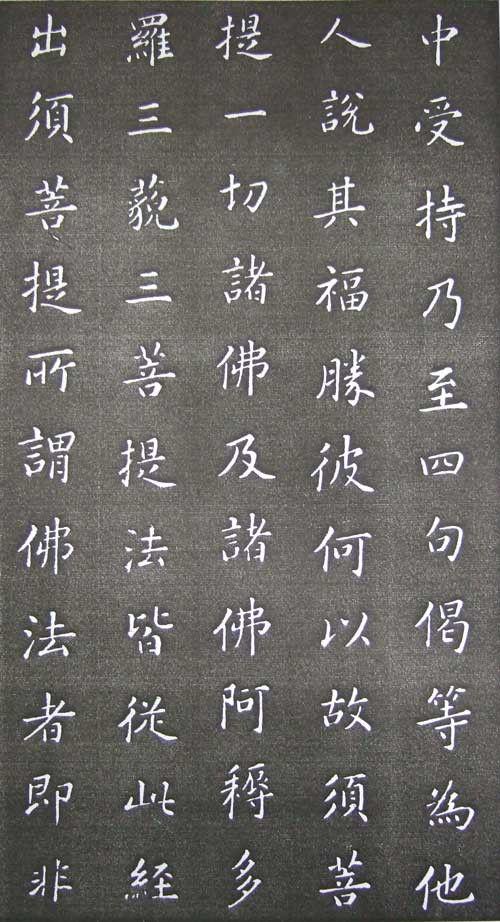 中受持乃至四句偈等為他
人說其福勝彼何以故須菩
提一切諸佛及諸佛阿耨多
羅三藐三菩提法皆從此経
出須菩提所謂佛法者即非